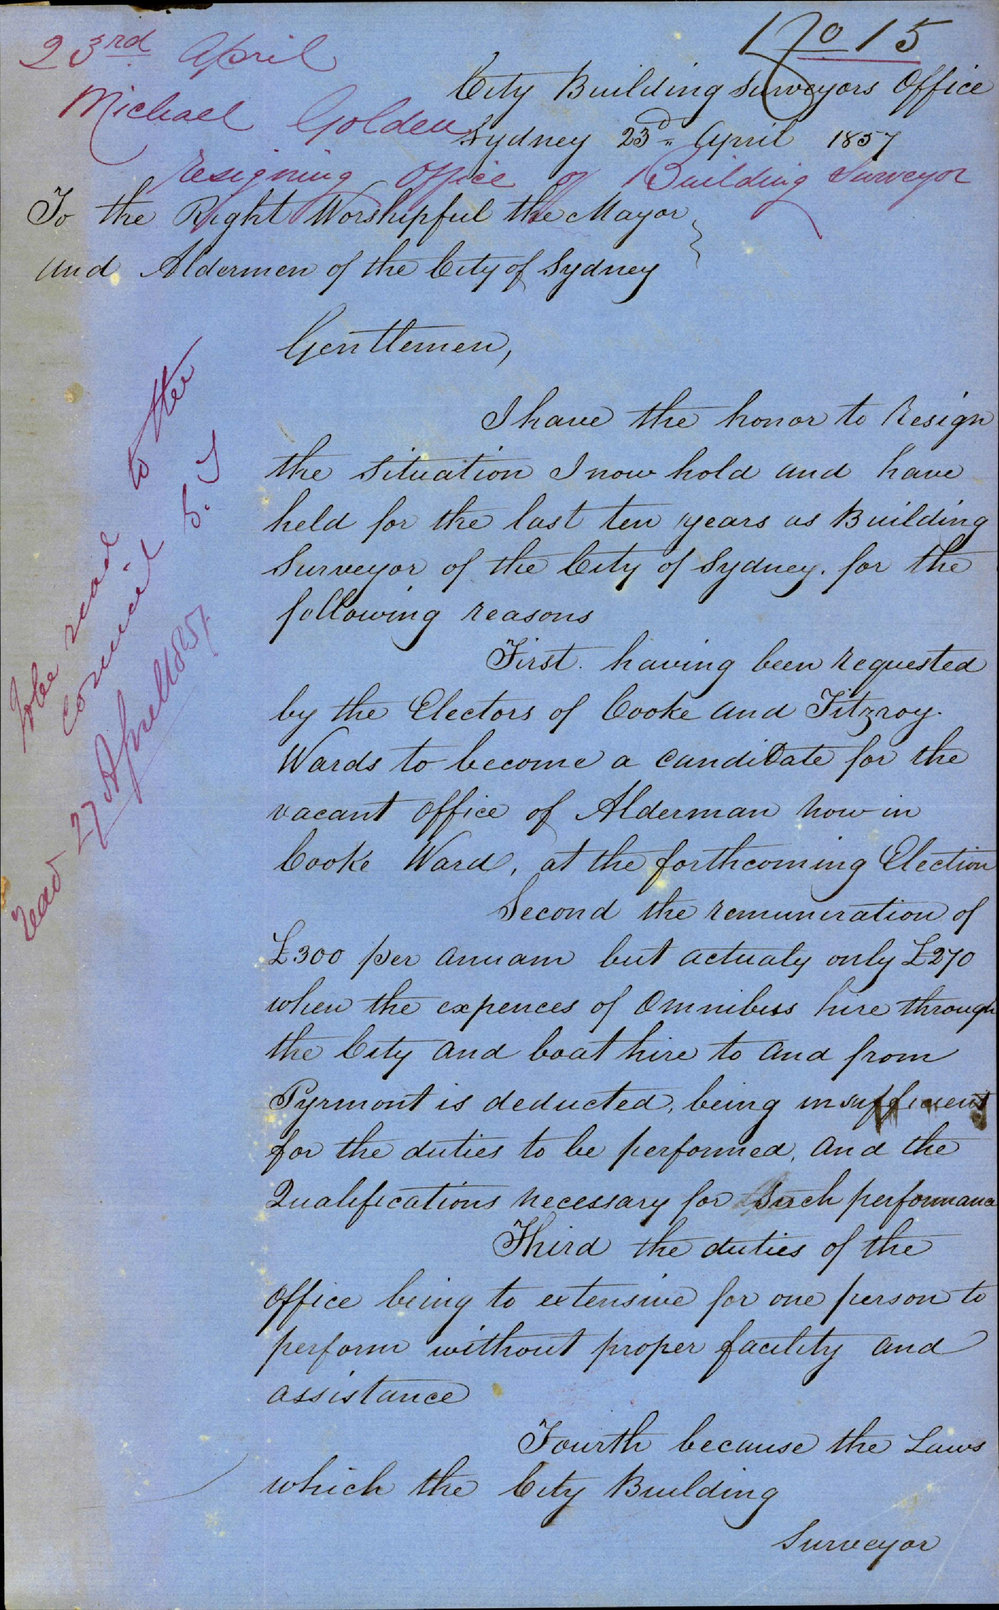 No 15
23rd April
Michael Golden
resigning office of Building Surveyor
City Building Surveyors Office
Sydney 23d April 1857
To the Right Worshipful the Mayor
and Aldermen of the City of Sydney
Gentlemen,
I have the honor to Resign
the situation I now hold and have
held for the last ten years as Building
Surveyor of the City of Sydney. for the
following reasons
First. having been requested
by the Electors of Cooke and Fitzroy.
Wards to become a candidate for the
vacant office of Alderman now in
Cooke Ward, at the forthcoming Election
Second the remuneration of
£300 per annum but actualy only £270
when the expences of Omnibuss hire through
the City and boat hire to and from
Pyrmont is deducted, being insufficient
for the duties to be performed, and the
Qualifications necessary for such performance
Third the duties of the
office being to extensive for one person to
perform without proper facility and
assistance
Fourth because the Laws
which the City Building
Surveyor
To be read to the
Council
read 27 April 1857